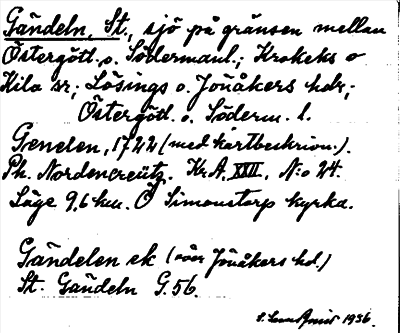 Gändeln, St., sjö på gränsen mellan
Östergötl. o. Södermanl.; Krokeks o
Kila sr; Lösings o. Jönåkers hdr;
Östergötl. o. Söderm. l.
Genelen, 1722 (med kartbeskrivn.).
Ph. Nordencreütz. Kr.A. XVII, N:o 24.
Läge 9,6 km. Ö Simonstorp kyrka.
Gändelen ek (röv. Jönåkers hd.)
St. Gändeln G.56.
1936.